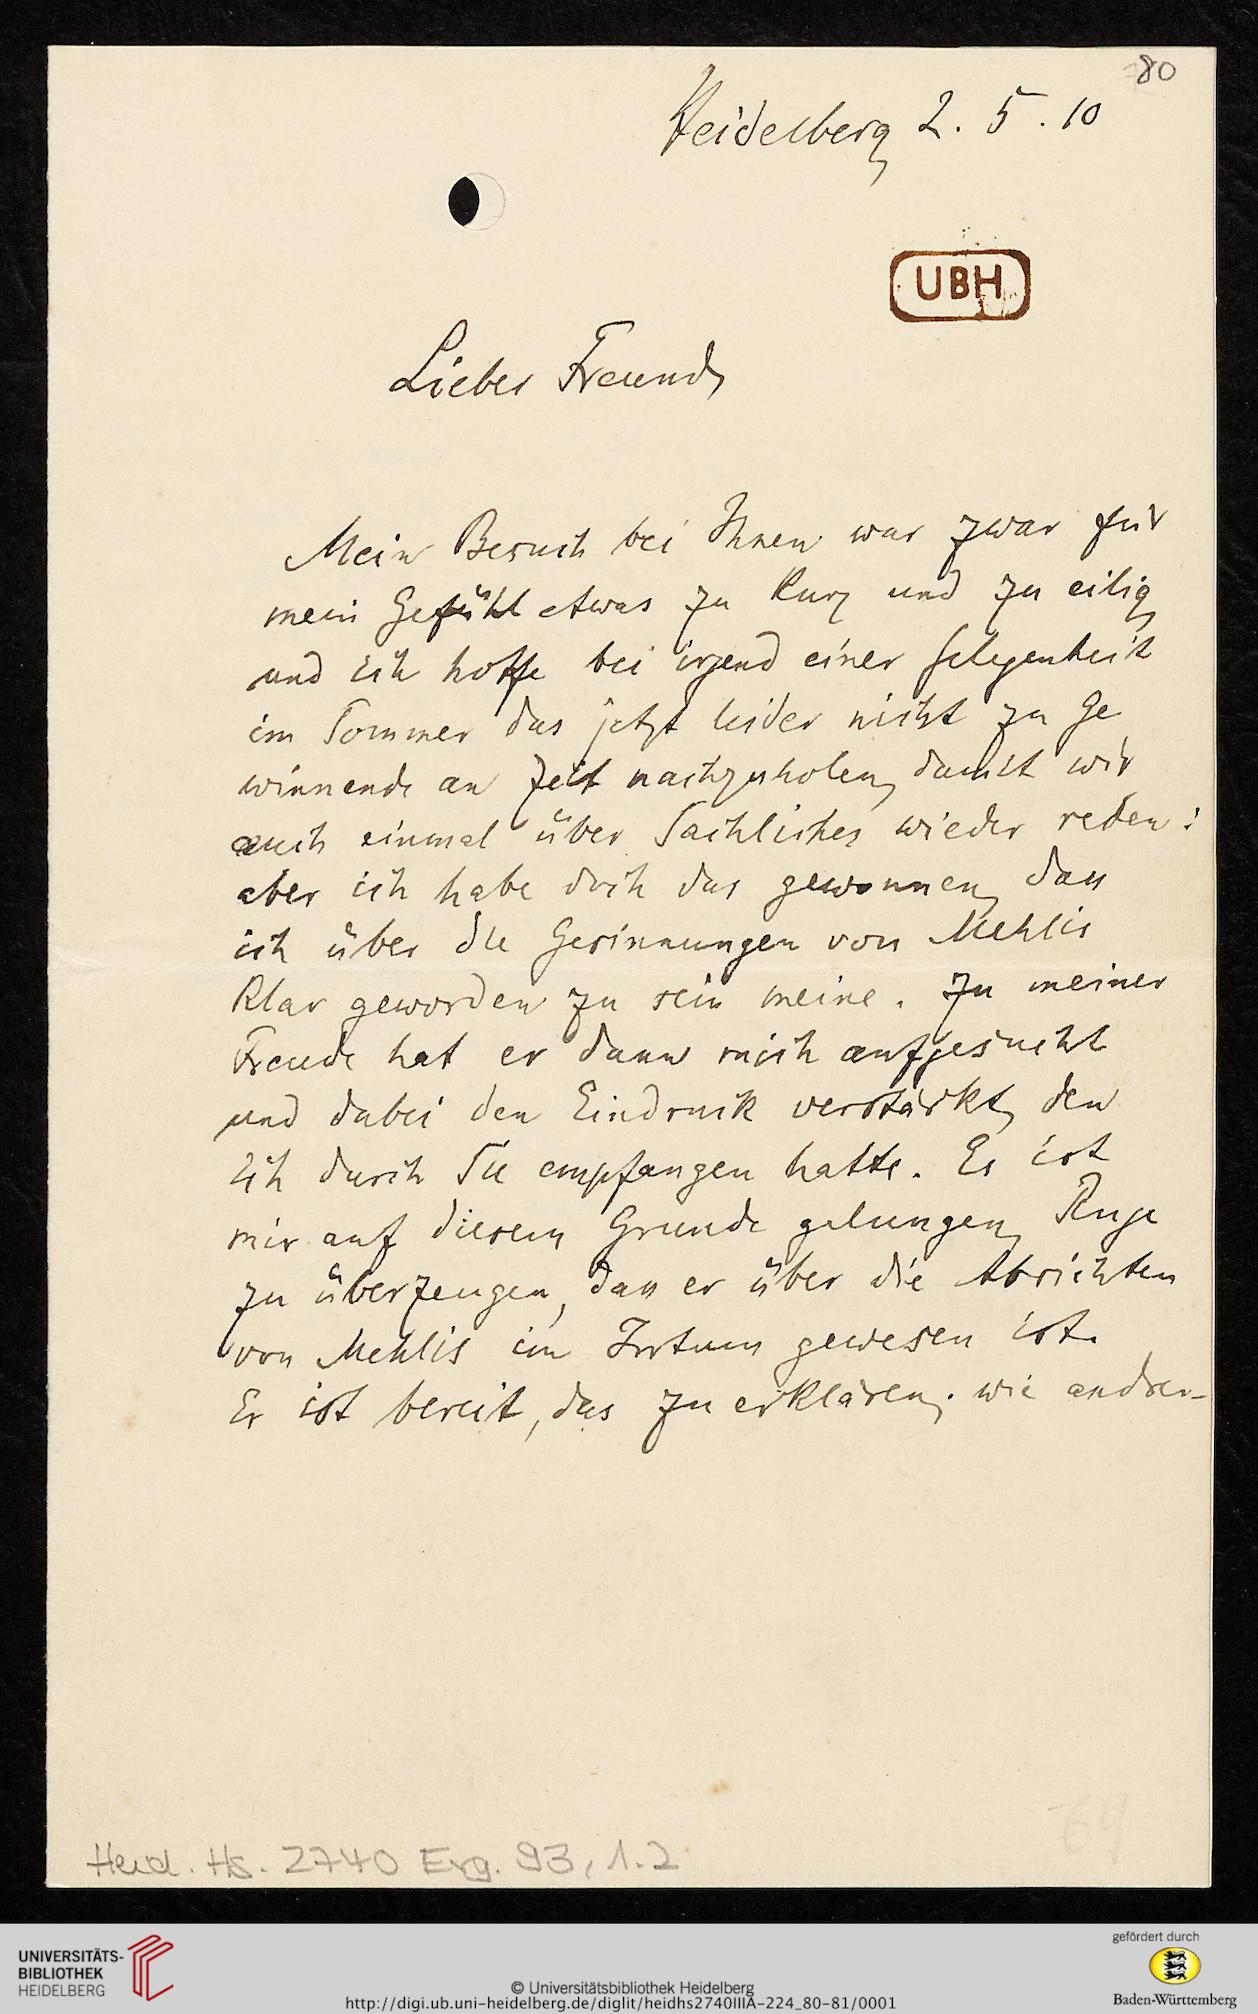 80
Heidelberg 2. 5. 10
UBH
Lieber Freund,
Mein Besuch bei Ihnen war zwar für
mein Gefühl etwas zu kurz und zu eilig,
und ich hoffe bei irgend einer Gelegenheit
im Sommer das jetzt leider nicht zu Ge
winnende an Zeit nachzuholen, damit wir
auch einmal über Sachliches wieder reden:
aber ich habe doch das gewonnen, dass
ich über die Gesinnungen von Mehlis
klar geworden zu sein meine. Zu meiner
Freude hat er dann mich aufgesucht
und dabei den Eindruck verstärkt, den
ich durch Sie empfangen hatte. Es ist
mir auf diesem Grunde gelungen, Ruge
zu überzeugen, dass er über die Absichten
von Mehlis im Irrtum gewesen ist.
Er ist bereit, das zu erklären; wie andrer-
Heid. Hs. 2740 Erg. 93, 1.2
69
UNIVERSITÄTS-
BIBLIOTHEK
HEIDELBERG
© Universitätsbibliothek Heidelberg
http://digi.ub.uni-heidelberg.de/diglit/heidhs2740IIIA-224_80-81/0001
gefördert durch
Baden-Württemberg